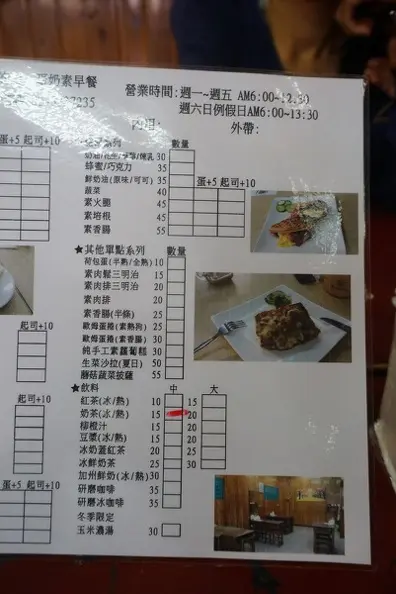 奶素早餐
7235
營業時間:週一~週五 AM6:00~12:30
週六日例假日AM6:00~13:30
外帶:
蛋+5 起司+10
系列 數量
30
蜂蜜/巧克力 35
鮮奶油(原味/可可) 35 蛋+5 起司+10
蔬菜 40
素火腿 45
素培根 45
素香腸 55
★其他單點系列 數量
荷包蛋(半熟/全熟) 10
素肉鬆三明治 15
素肉排三明治 20
素肉排 20
素香腸(半條) 25
歐姆蛋捲(素熱狗) 25
歐姆蛋捲(素香腸) 30
純手工素蘿蔔糕 30
生菜沙拉(夏日) 50
蘑菇蔬菜披薩 55
起司+10
★飲料 中 大
紅茶(冰/熱) 10 15
奶茶(冰/熱) 15 20
柳橙汁 15 20
豆漿(冰/熱) 15 20
冰奶蓋紅茶 20 25
冰鮮奶茶 25 30
加州鮮奶(冰/熱) 30
研磨咖啡 35
研磨冰咖啡 35
冬季限定
玉米濃湯 30
起司+10
蛋+5 起司+10